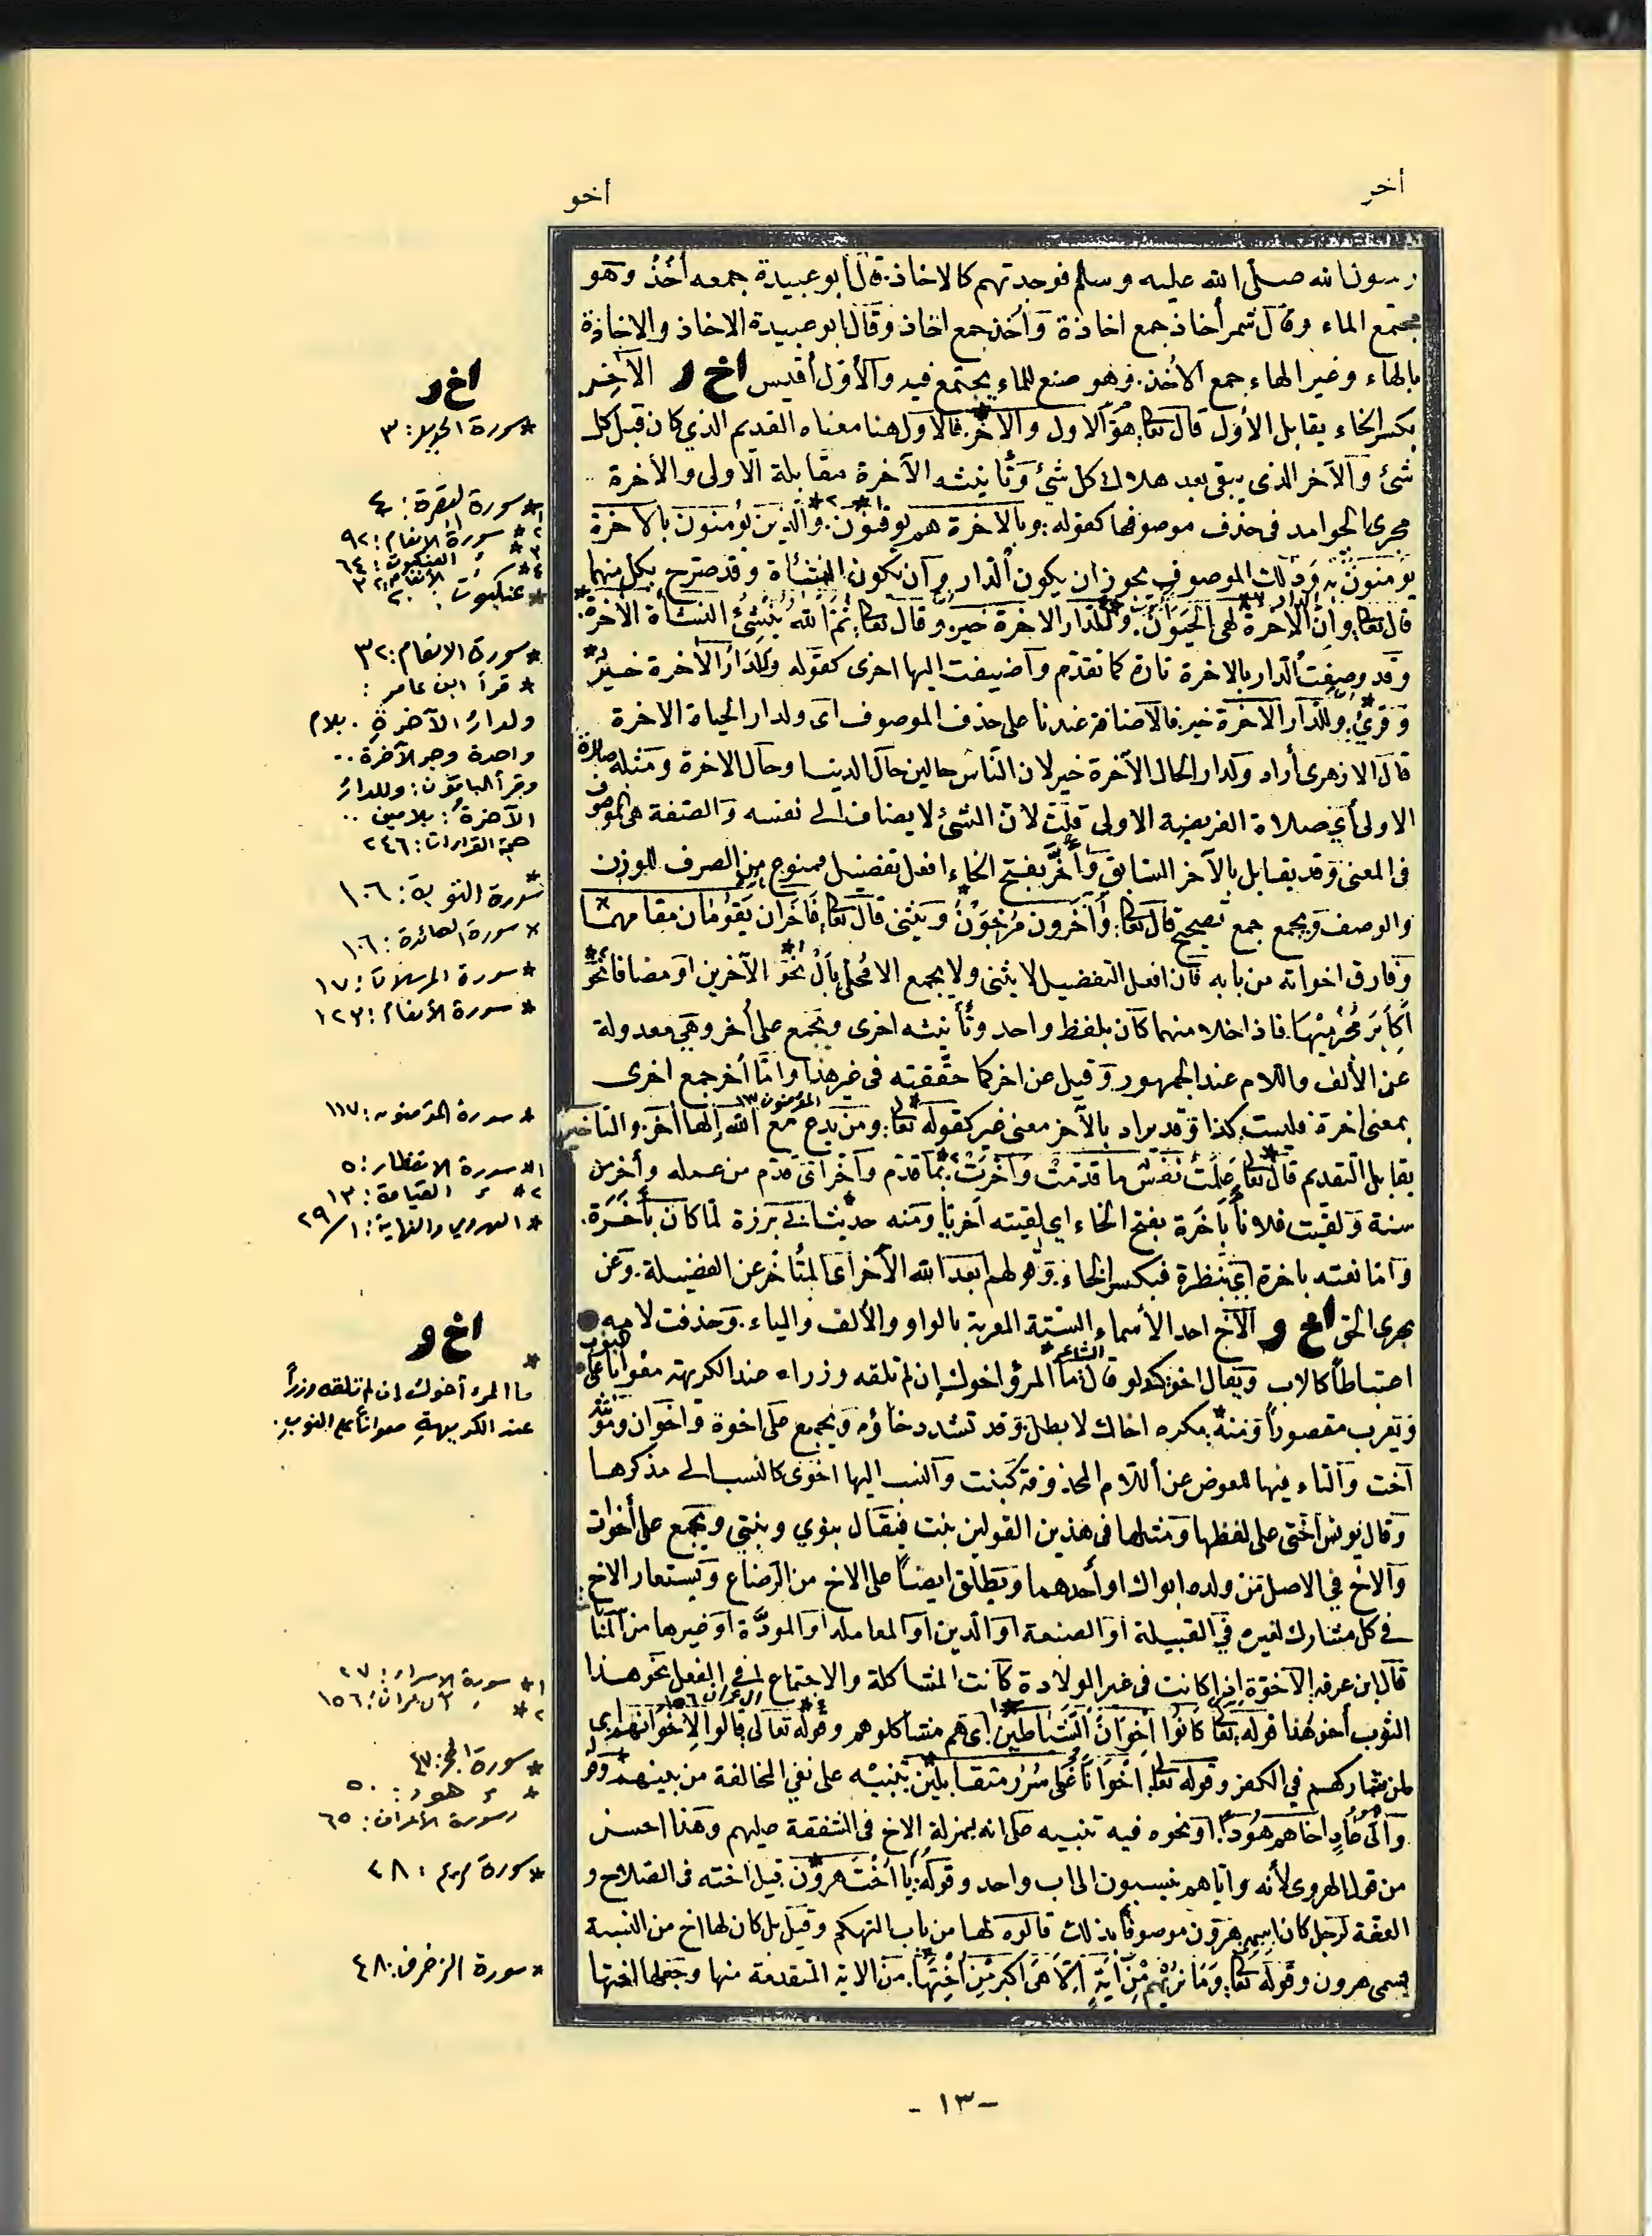 أخر
أخو
رسول الله صلى الله عليه وسلم فوجدتهم كالاخاذ. قال ابو عبيدة جمعه أُخُذٌ وهو
مجتمع الماء وقال شمر أخاذ جمع اخاذة وأخذ جمع اخاذ وقال ابو عبيدة الاخاذ والاخاذة
بالهاء وغير الهاء جمع الأخذ. وهو صنع للماء يجتمع فيه والأول أقيس اخ ر الآخِر
بكسر الخاء يقابل الأول قال تعا: هو الاول والاخر. فالاول هنا معناه القديم الذي كان قبل كل
شئ والآخر الذي يبقى بعد هلاك كل شئ وتأنيثه الآخرة مقابلة الاولى والأخرة
مجرى الجوامد في حذف موصوفها كقوله: وبالاخرة هم يوقنون. والذين يؤمنون بالاخرة
يؤمنون به وذلك الموصوف يجوز ان يكون الدار وأن يكون النشأة وقد صرح بكل منهما
قال تعا: وان الدار الاخرة لهي الحيوان. وللدار الاخرة خير. وقال تعا: ثم الله ينشئ النشأة الاخرة.
وقد وصفت الدار بالاخرة تارة كما تقدم وأضيفت اليها اخرى كقوله وللدار الأخرة خير
وقرئ: وللدار الآخرة خير. فالاضافة عندنا على حذف الموصوف اى ولدار الحياة الاخرة
قال الازهرى أراد ولدار الحال الآخرة خير لان الناس حالين حال الدنيا وحال الاخرة ومثله صلاة
الاولى أي صلاة الفريضة الاولى قلت لان الشئ لا يضاف الى نفسه والصفة هي الموصوف
في المعنى وقد يقابل بالآخر السابق وأخَر بفتح الخاء افعل تفضيل ممنوع من الصرف للوزن
والوصف ويجمع جمع تصحيح قال تعا: وآخرون مرجون ويثنى قال تعا: فآخران يقومان مقامهما
وفارق اخواته من بابه فان افعل التفضيل لا يثنى ولا يجمع الا محلى بأل نحو الآخرين او مضافا نحو
أكابر مجرميها. فاذا خلا منهما كان بلفظ واحد وتأنيثه اخرى وتجمع على أخر وهي معدولة
عن الألف واللام عند الجمهور وقيل عن اخر كما حققته في غير هذا واما أخر جمع اخرى
بمعنى اخرة فليست كذا وقد يراد بالآخر معنى غير كقوله تعا: ومن يدع مع الله إلها أخر. والتأخير
المؤمنون
يقابل التقديم قال تعا: علمت نفس ما قدمت وأخرت. بما قدم وأخر اى قدم من عمله وأخر من
سنة ولقيت فلاناً بأخَرة بفتح الخاء اي لقيته أخريًا ومنه حديث ابي برزة لما كان بأخَرة.
واما بعته باخرة اي بنظرة فبكسر الخاء. وقولهم ابعد الله الأخر اى المتأخر عن الفضيلة. وعن
بحرى الحق اخ و الأخ احد الأسماء الستة المعربة بالواو والألف والياء. وحذفت لامه
اعتباطاً كالاب ويقال اخو كدلو قال الشاعر ما المرؤ اخوك إن لم تلقه وزرا عند الكريهة معوانا على النوب
ويعرب مقصوراً ومنه: مكره اخاك لا بطل. وقد تشدد خاؤه ويجمع على اخوة واخوان ومؤنثه
أخت والتاء فيها للعوض عن اللام المحذوفة كبنت والنسب اليها اخوى كالنسب الى مذكرها
وقال يونس اختى على لفظها ومثلها في هذين القولين بنت فيقال بنوي وبنتي ويجمع على أخوات
والاخ في الاصل من ولده ابواك او أحدهما ويطلق ايضاً على الاخ من الرضاع ويستعار الاخ
في كل مشارك لغيره في القبيلة او الصنعة او الدين او المعاملة او المودة او غيرها من
قال ابن عرفه الاخوة اذا كانت في غير الولادة كانت المشاكلة والاجتماع في الفعل نحو هذا
الثوب أخو هذا قوله تعا: كانوا اخوان الشياطين. اى هم مشاكلوهم وقوله تعالى قالوا لاخوانهم اى
لمن شاركهم في الكفر وقوله تعا: اخوانا على سرر متقابلين تنبيه على نفي المخالفة من بينهم وقوله
والى عاد اخاهم هوداً او نحوه فيه تنبيه على انه بمنزلة الاخ في الشفقة عليهم وهذا احسن
من قول الهروى لأنه واياهم ينسبون الى اب واحد وقوله: يا اخت هرون. قيل اخته في الصلاح و
العفة لرجل كان اسمه هرون موصوفا بذلك قالوه لها من باب التهكم وقيل بل كان لها اخ من النسبة
يسمى هرون وقوله تعا: وما نريهم من آية الا هي اكبر من اختها. من الاية المتقدمة منها وجعلها اختها
اخ ر
* سورة الحديد: ٣
١* سورة البقرة: ٤
٢* سورة الانعام: ٩٢
٣* العنكبوت: ٦٤
٤* الأنعام: ٣٢
* عنكبوت: ٢٠
* سورة الانعام: ٣٢
* قرأ ابن عامر:
ولدار الآخرةِ. بلام
واحدة وجر الآخرة..
وقرأ الباقون: وللدارُ
الآخرةُ: بلامين..
حجة القراءات: ٢٤٦
* سورة التوبة: ١٠٦
* سورة المائدة: ١٠٦
* سورة المرسلات: ١٧
* سورة الأنعام: ١٢٣
* سورة المؤمنون: ١١٧
١* سورة الانفطار: ٥
٢* القيامة: ١٣
* الهروي والنهاية: ٢٩/١
اخ و
*
ما المرء أخوك إن لم تلقه وزراً
عند الكريهةِ معواناً على النوبِ.
١* سورة الاسراء: ٢٧
٢* آل عمران: ١٥٦
* سورة الحجر: ٤٧
* هود: ٥٠
وسورة الأعراف: ٦٥
* سورة مريم: ٢٨
* سورة الزخرف: ٤٨
- ١٣ -